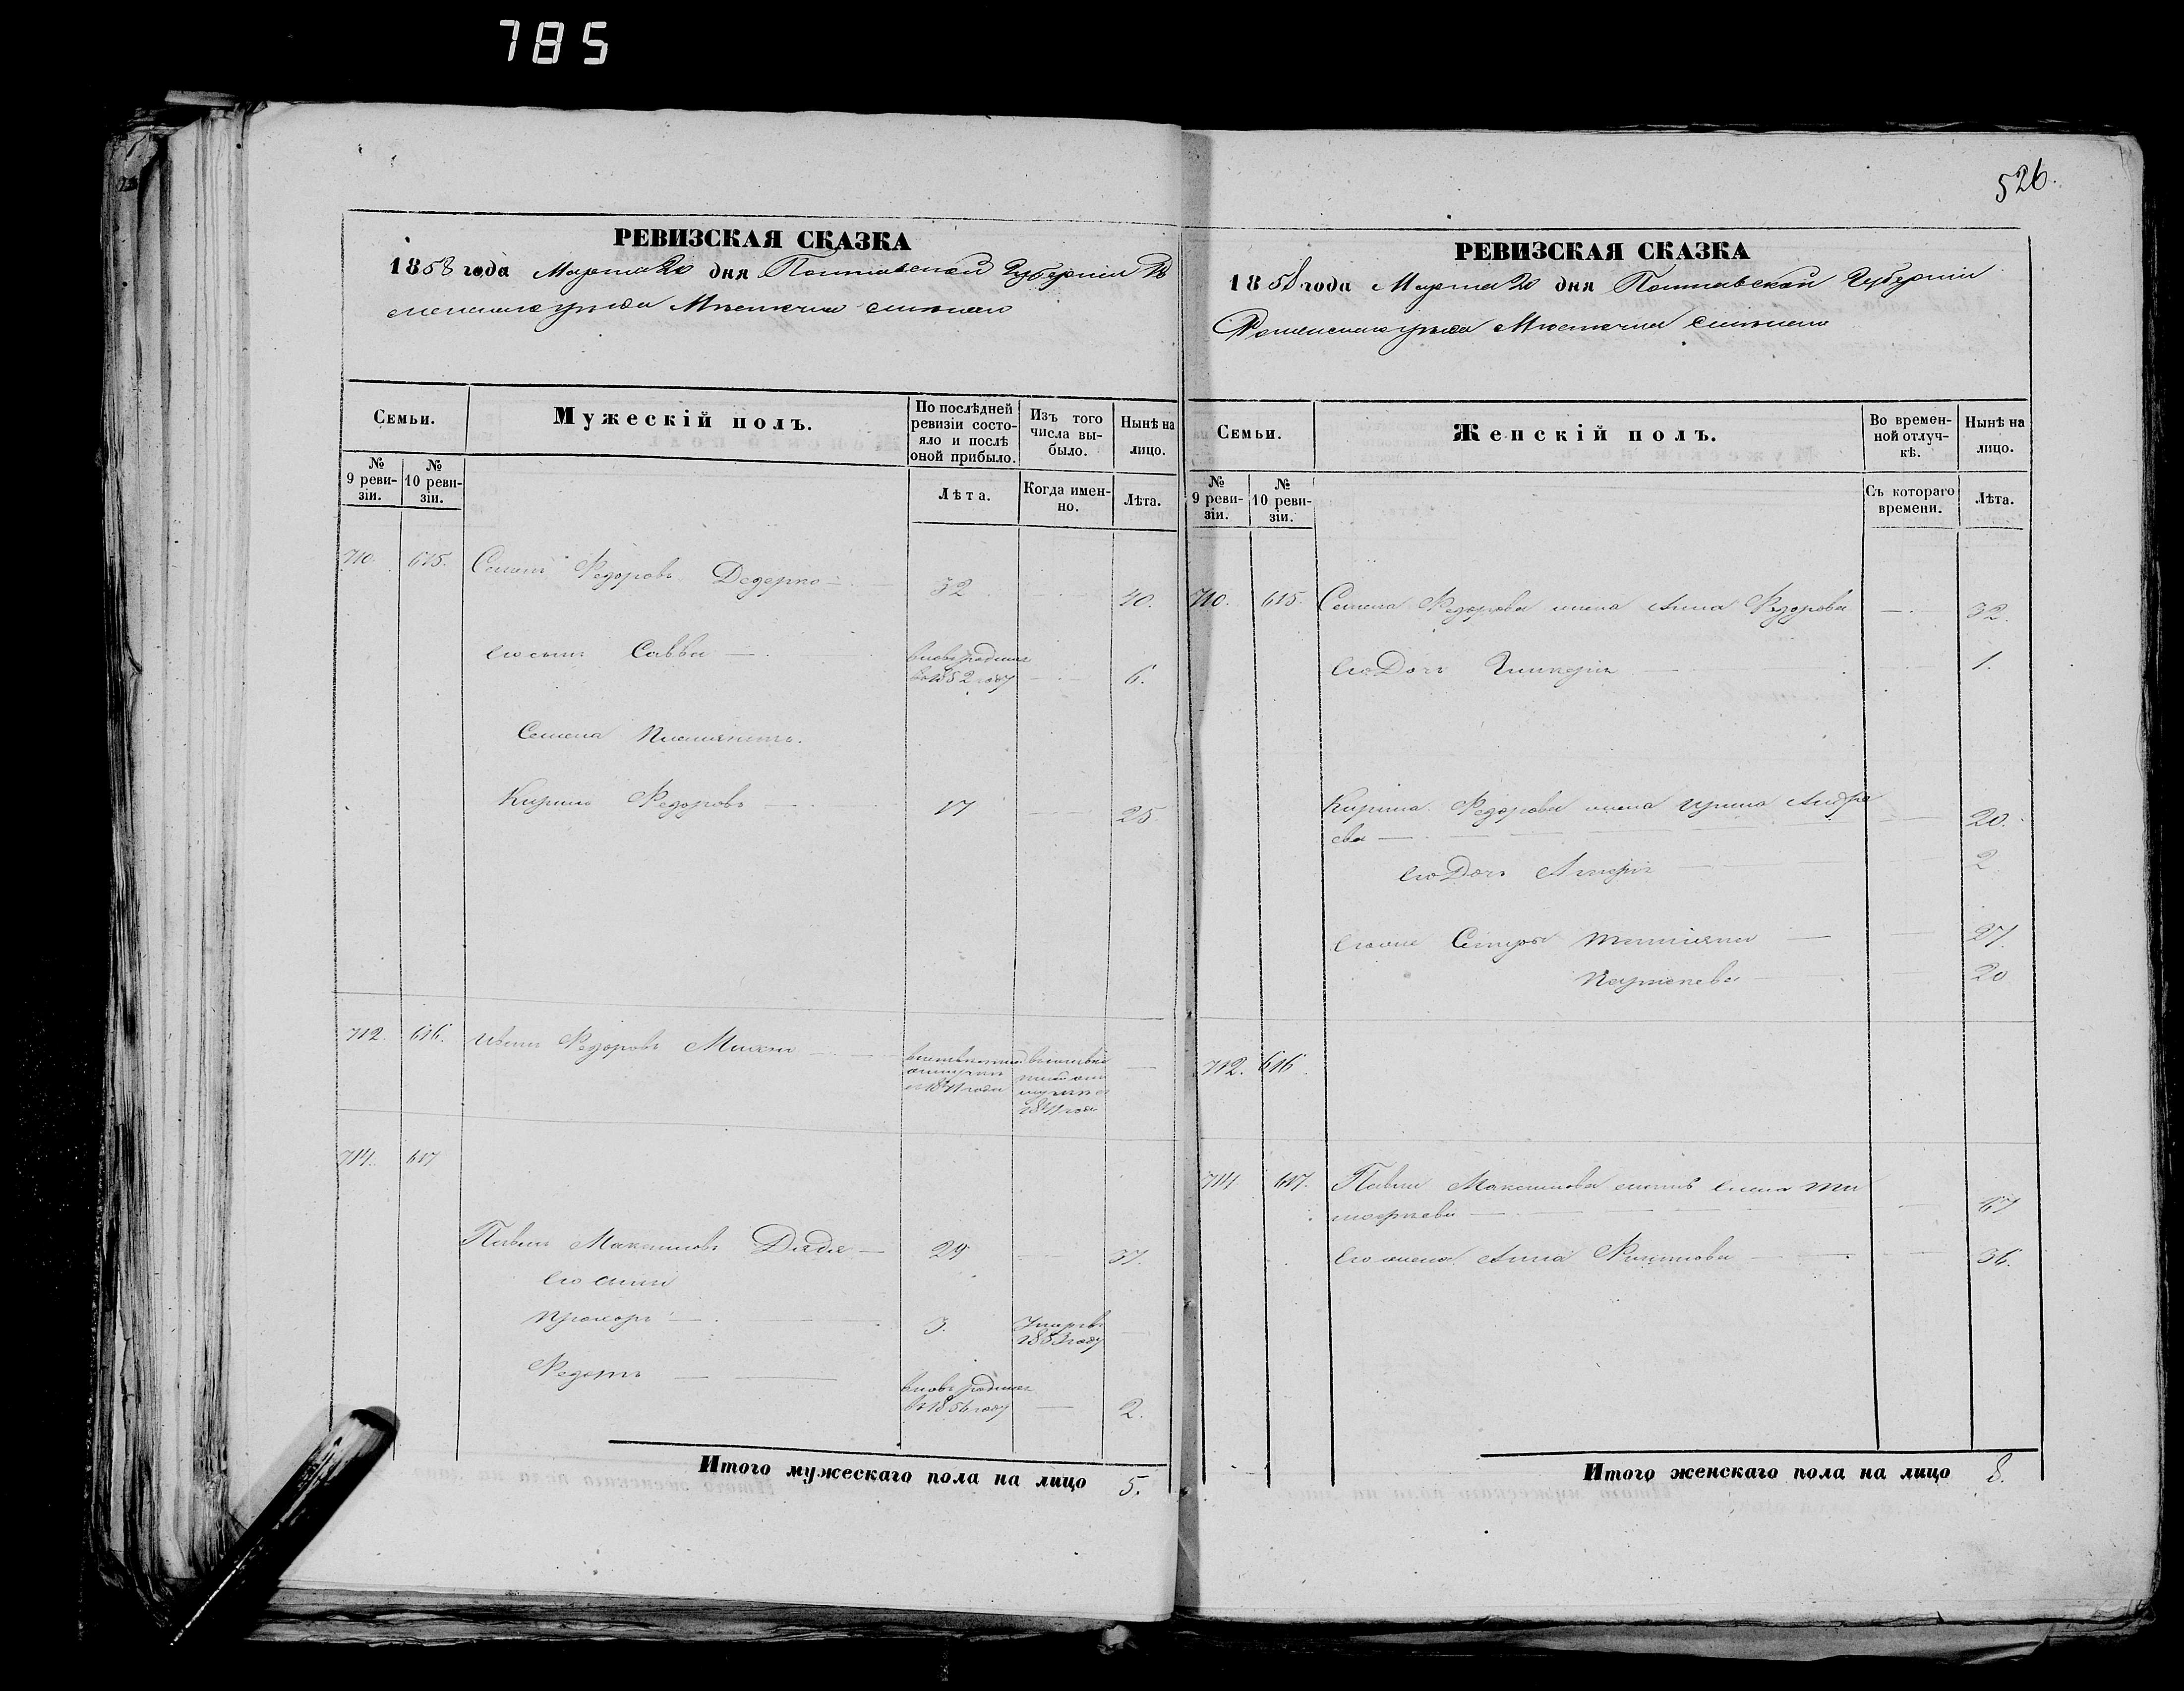 785
526.
РЕВИЗСКАЯ СКАЗКА
1858 года Марта 20 дня Полтавской Губерніи Ро
менскаго уѣзда Мѣстечка Смѣлаго
Семьи.
Мужескій полъ.
По послѣдней ревизіи состо-
яло и послѣ
оной прибыло.
Изъ того
числа вы-
было.
Нынѣ на
лицо.
№
9 реви-
зіи.
№
10 реви-
зіи.
Лѣта.
Когда имен-
но.
Лѣта.
710. 615. Семенъ Федоровъ Дедерко 32 40.
его сынъ Савва
вновь рожден
в 1852 году 6.
Семена племянникъ.
Кирило Федоровъ 17 25
712. 616. Иванъ Федоровъ
1841 года
1841 года
714. 617
Павелъ Максимовъ Дядя 29 37.
его сыны
Прохоръ 3. Умеръ
1853 году
Федотъ
вновь рожден
в 1856 году 2.
Итого мужескаго пола на лицо 5.
РЕВИЗСКАЯ СКАЗКА
1858 года Марта 20 дня Полтавской Губерніи
Роменскаго уѣзда Мѣстечка Смѣлаго
Семьи.
Женскій полъ.
Во времен-
ной отлуч-
кѣ.
Нынѣ на
лицо.
№
9 реви-
зіи.
№
10 реви-
зіи.
Съ котораго
времени.
Лѣта.
710. 615. Семена Федорова жена Анна Федорова 32.
его Дочь Гликерія 1.
Кирила Федорова жена Ирина Андре
ева 20.
его Дочь 2
его же Сестры Татіана 27.
20
712. 616
714 617. Павла Максимова Елена Ти
мофеева 67
его жена Анна Филипова 36.
Итого женскаго пола на лицо 8.